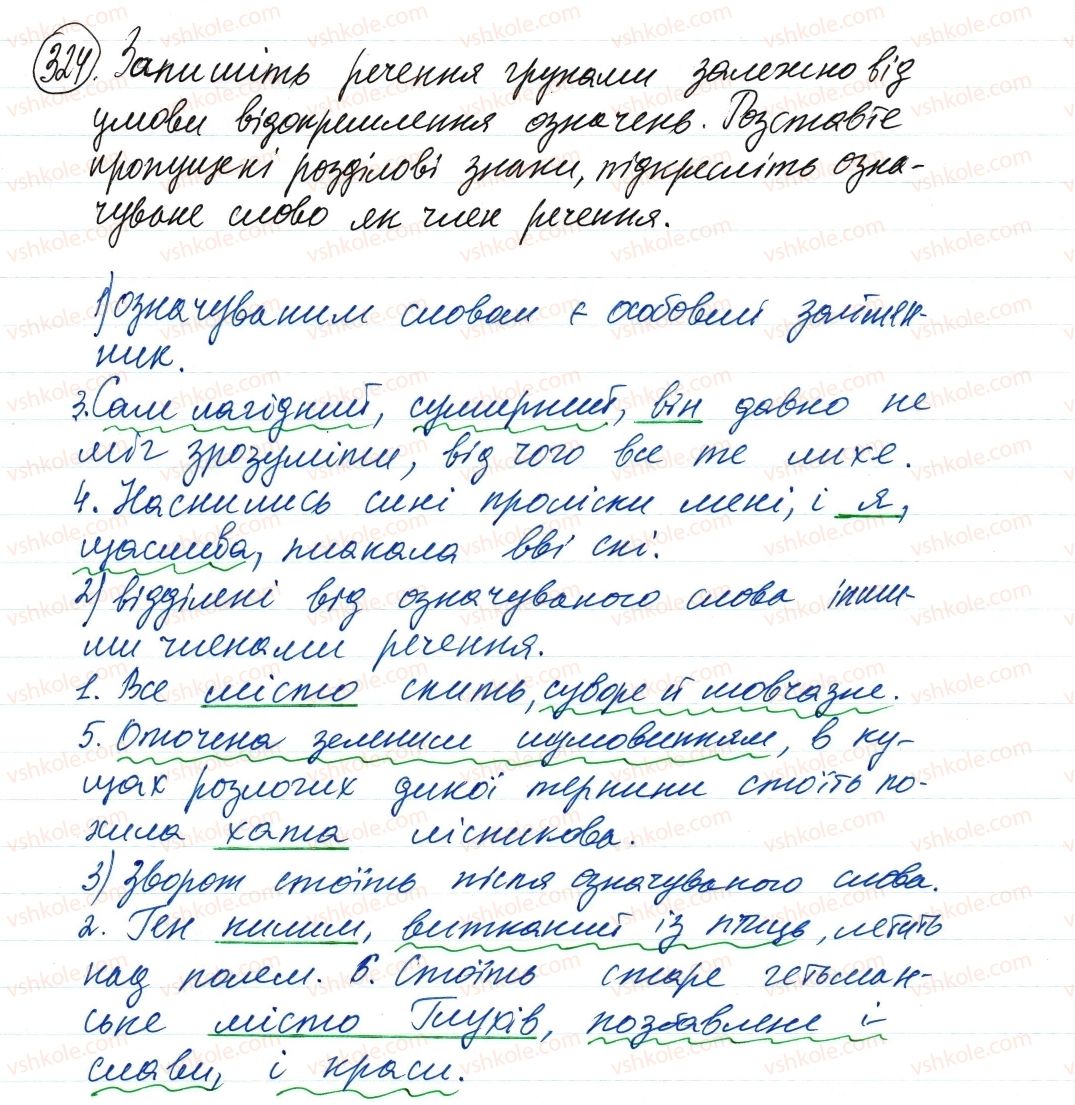 324. Запишіть речення групами залежно від
умови відокремлення означень. Розставте
пропущені розділові знаки, підкресліть озна-
чуване слово як член речення.
1) означуваним словом є особовий займен-
ник.
3. Сам лагідний, сумирний, він давно не
міг зрозуміти, від чого все те лихе.
4. Наснились сині проліски мені, і я,
щаслива, плакала вві сні.
2) відділені від означуваного слова інши-
ми членами речення.
1. Все місто спить, суворе й мовчазне.
5. Оточена зеленим шумовинням, в ку-
щах розлогих дикої терпини стоїть по-
хила хата лісникова.
3) Зворот стоїть після означуваного слова.
2. Ген килим, витканий із птиць, летить
над полем. 6. Стоїть старе гетьман-
ське місто Глухів, позбавлене і
слави, і краси.